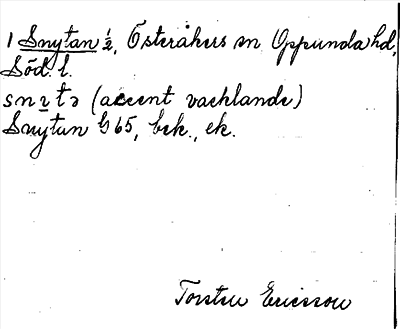 1 Snytan ½, Österåkers sn Oppunda hd,
Söd. l.
snɿtə (accent vacklande)
Snytan G 65, bek., ek.
Torsten Ericsson